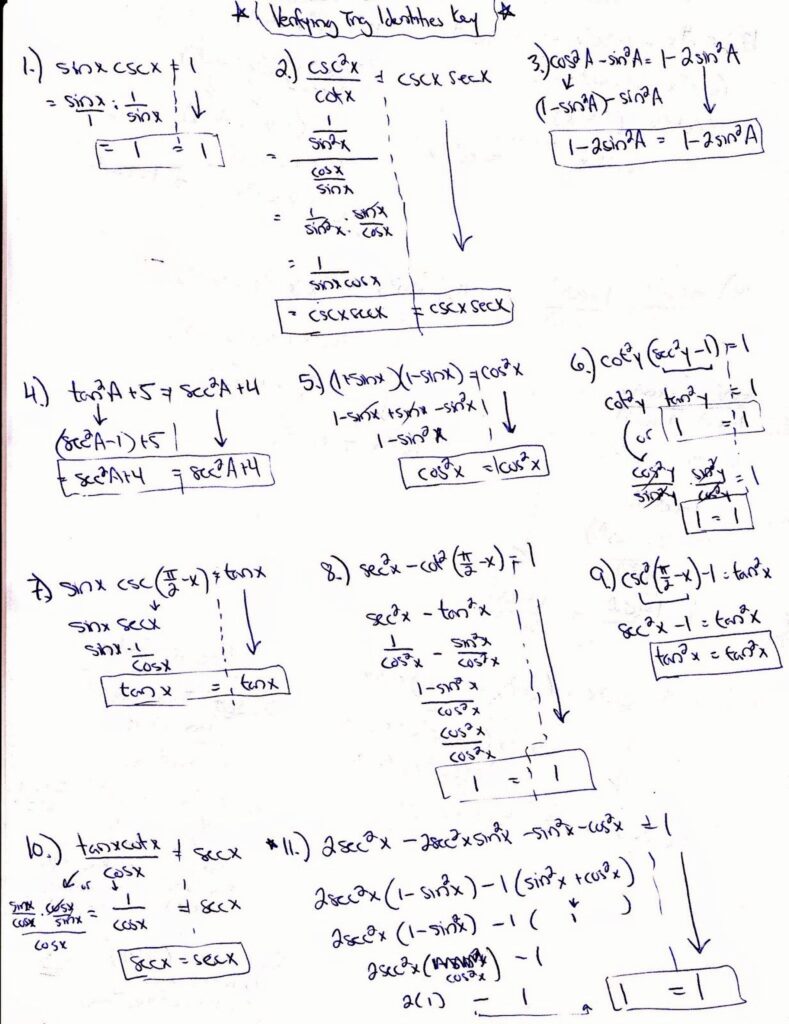 * Verifying Trig Identities Key *
1.) sinx cscx = 1
= sinx/1 · 1/sinx
= 1 = 1
2.) csc²x/cotx = cscx secx
= (1/sin²x)/(cosx/sinx)
= 1/sin²x · sinx/cosx
= 1/sinxcosx
= cscxsecx = cscxsecx
3.) cos²A - sin²A = 1 - 2sin²A
(1-sin²A) - sin²A
1-2sin²A = 1-2sin²A
4.) tan²A + 5 = sec²A + 4
(sec²A-1)+5
= sec²A+4 = sec²A+4
5.) (1+sinx)(1-sinx) = cos²x
1-sinx+sinx-sin²x
1-sin²x
cos²x = cos²x
6.) cot²y (sec²y-1) = 1
cot²y tan²y = 1
or
1 = 1
cos²y/sin²y · sin²y/cos²y = 1
1 = 1
7.) sinx csc(π/2-x) = tanx
sinx secx
sinx · 1/cosx
tanx = tanx
8.) sec²x - cot²(π/2-x) = 1
sec²x - tan²x
1/cos²x - sin²x/cos²x
1-sin²x/cos²x
cos²x/cos²x
1 = 1
9.) csc²(π/2-x)-1 = tan²x
sec²x-1 = tan²x
tan²x = tan²x
10.) tanxcotx/cosx = secx
or
(sinx/cosx · cosx/sinx)/cosx = 1/cosx = secx
secx = secx
*11.) 2sec²x - 2sec²xsin²x - sin²x - cos²x = 1
2sec²x (1-sin²x) - 1 (sin²x + cos²x)
2sec²x (1-sin²x) - 1 ( 1 )
2sec²x (cos²x) - 1
2(1) - 1 1 = 1